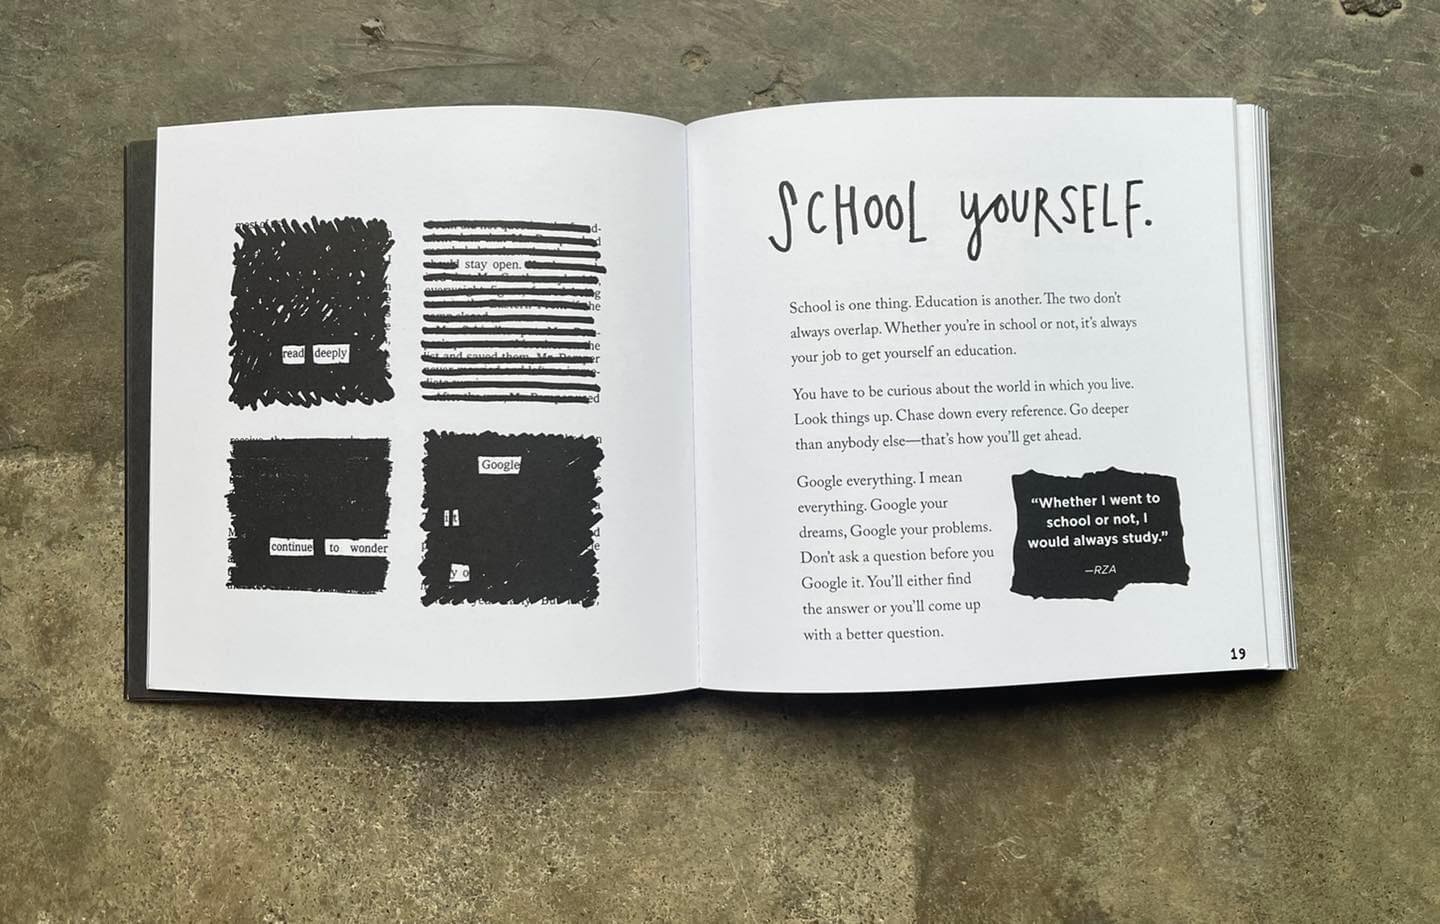 read deeply
stay open.
continue to wonder
Google
it
y o
SCHOOL YOURSELF.
School is one thing. Education is another. The two don't
always overlap. Whether you're in school or not, it's always
your job to get yourself an education.
You have to be curious about the world in which you live.
Look things up. Chase down every reference. Go deeper
than anybody else—that's how you'll get ahead.
Google everything. I mean
everything. Google your
dreams, Google your problems.
Don't ask a question before you
Google it. You'll either find
the answer or you'll come up
with a better question.
“Whether I went to
school or not, I
would always study.”
—RZA
19